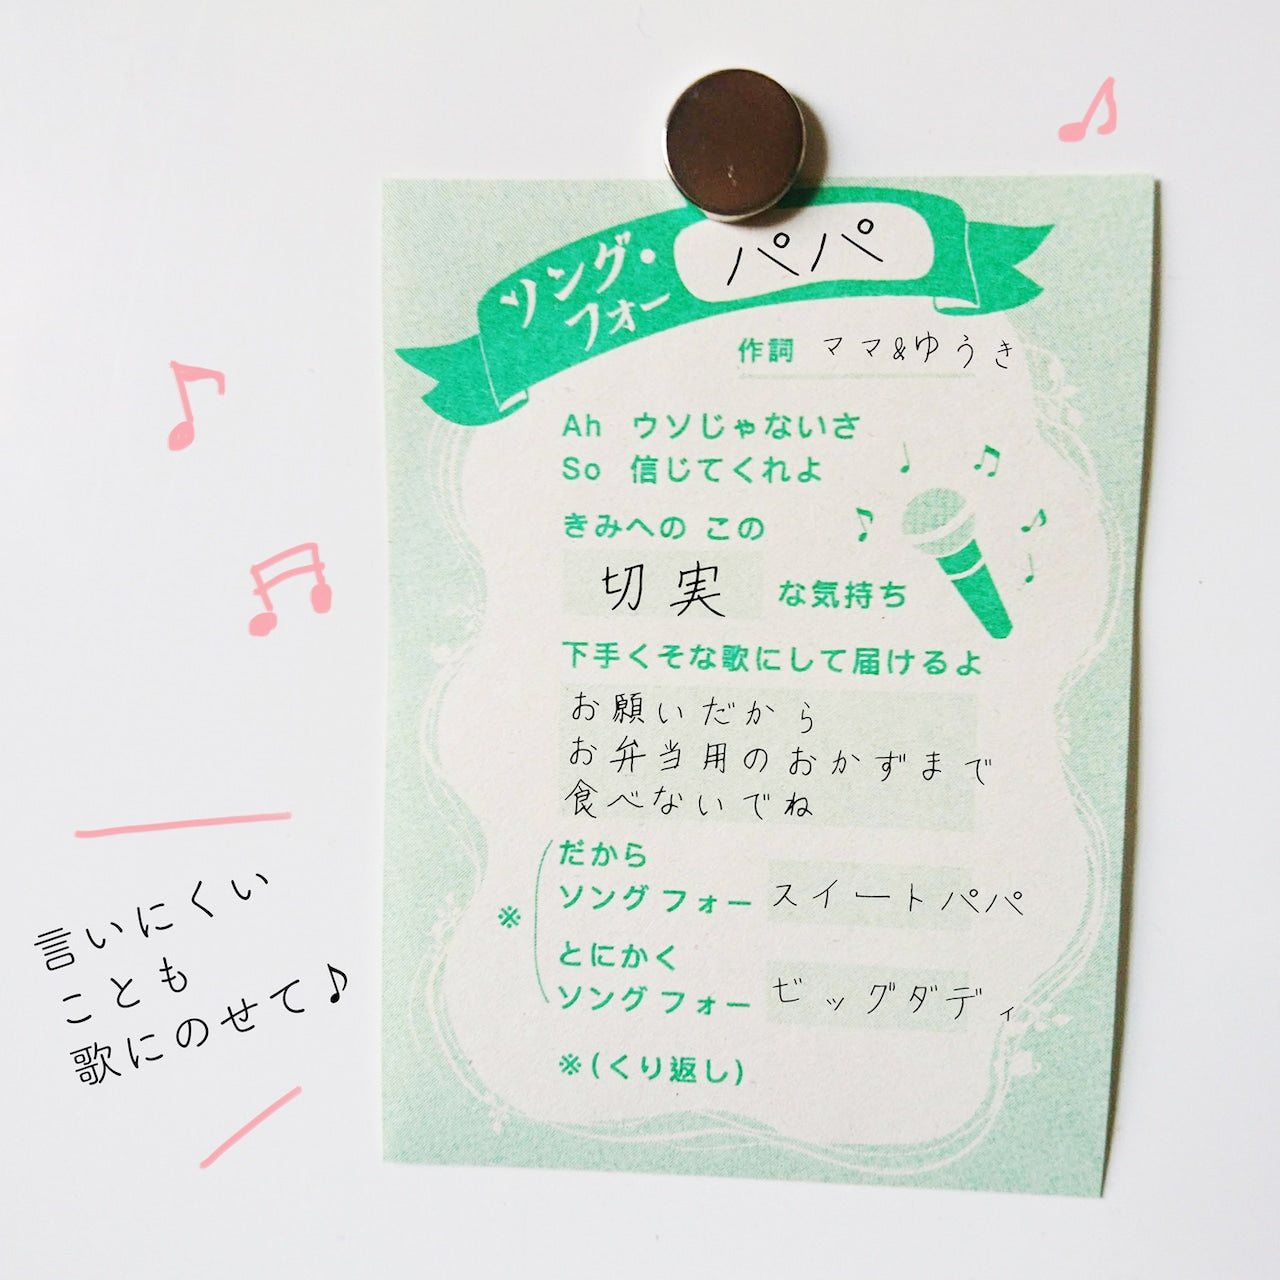 ソング・
フォー
パパ
作詞 ママ&ゆうき
Ah ウソじゃないさ
So 信じてくれよ
きみへの この
切実 な気持ち
下手くそな歌にして届けるよ
お願いだから
お弁当用のおかずまで
食べないでね
だから
※ ソング フォー スイートパパ
とにかく
ソング フォー ビッグダディ
※(くり返し)
言いにくい
ことも
歌にのせて♪